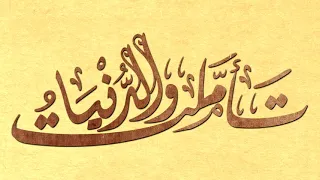 تأملت والدُّنْيَا